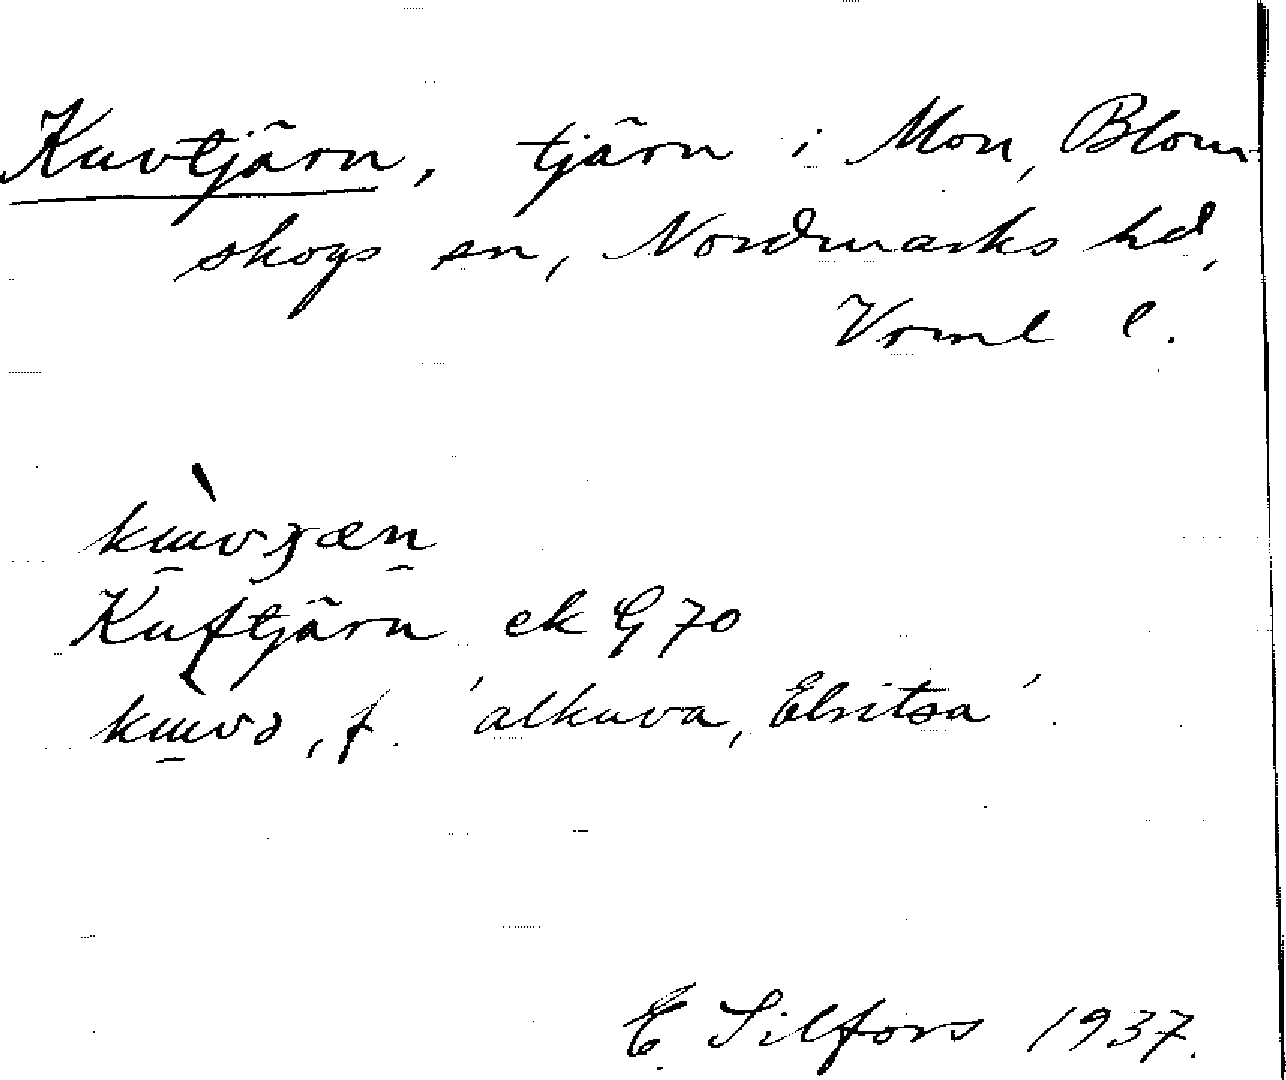 Kuvtjärn, tjärn i Mon, Blom-
skogs sn, Nordmarks hd,
Vrml l.
Kuftjärn ek G 70
f. 'alkuva, Elritsa'.
E. Silfors 1937.